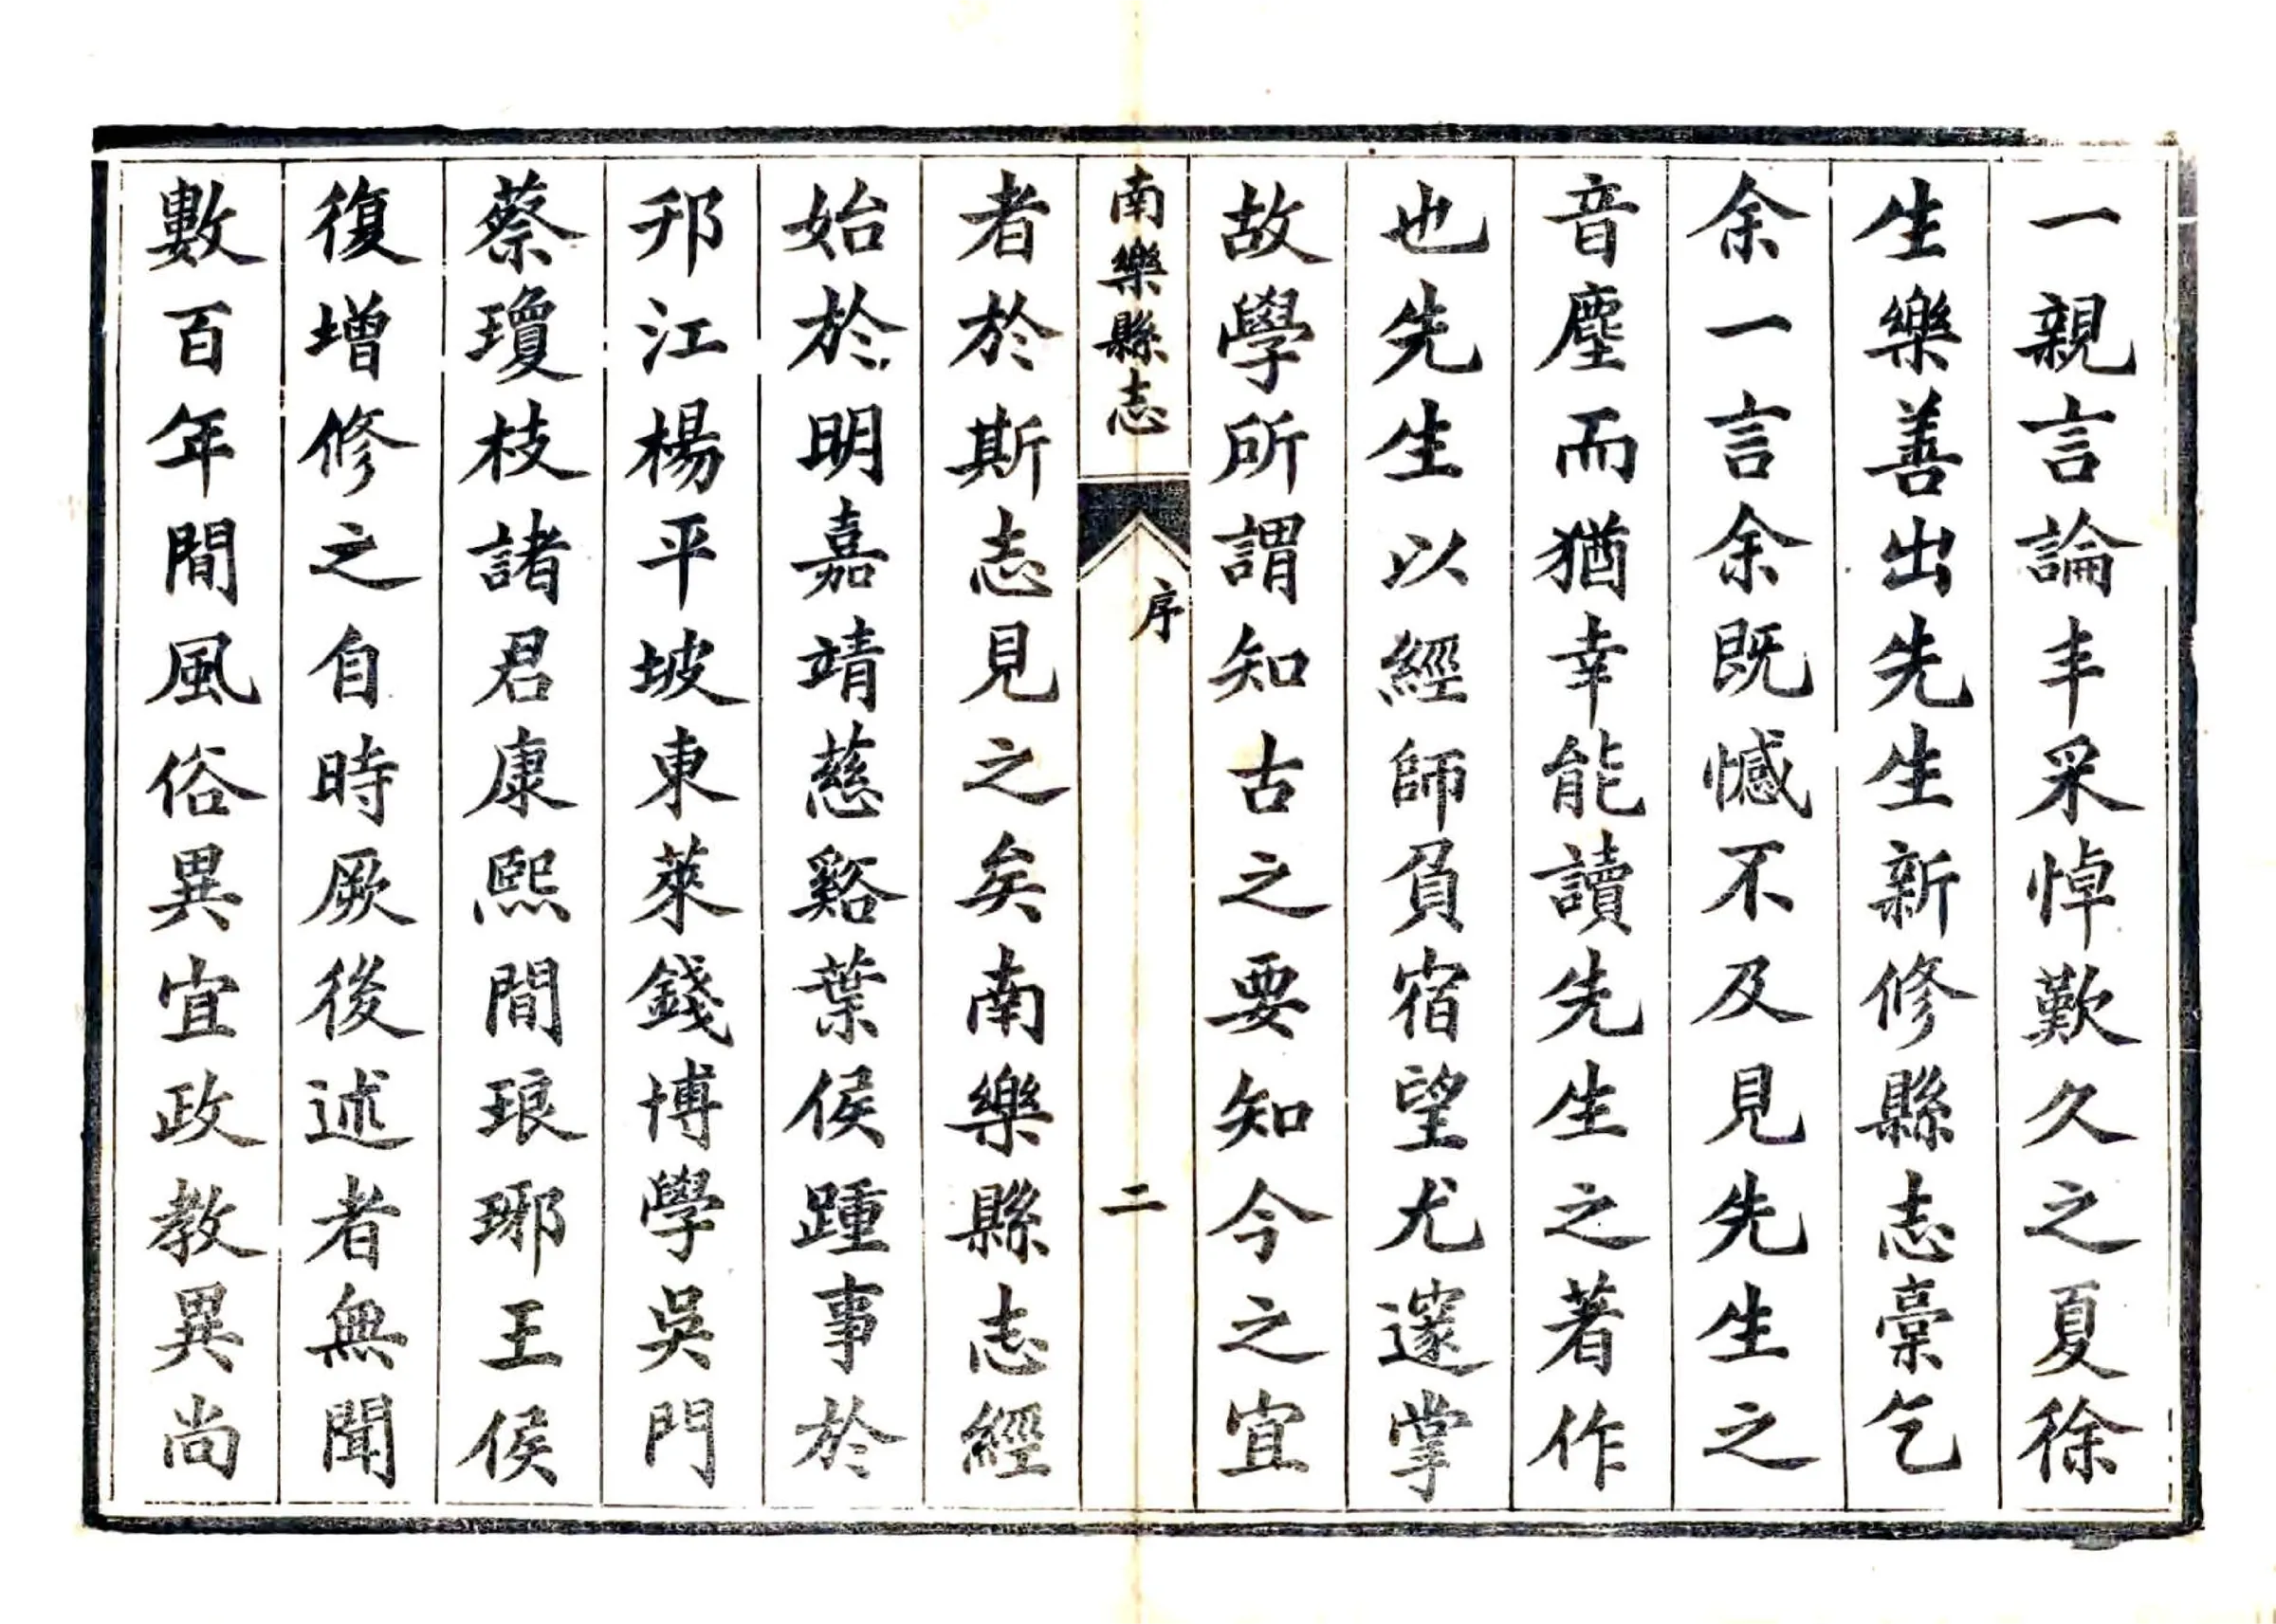 一親言論丰采悼歎久之夏徐
生樂善出先生新修縣志稾乞
余一言余既憾不及見先生之
音塵而猶幸能讀先生之著作
也先生以經師負宿望尤邃掌
故學所謂知古之要知今之宜
南樂縣志 序 二
者於斯志見之矣南樂縣志經
始於明嘉靖慈谿葉侯踵事於
邗江楊平坡東萊錢博學吳門
蔡瓊枝諸君康熙間琅琊王侯
復增修之自時厥後述者無聞
數百年間風俗異宜政教異尚